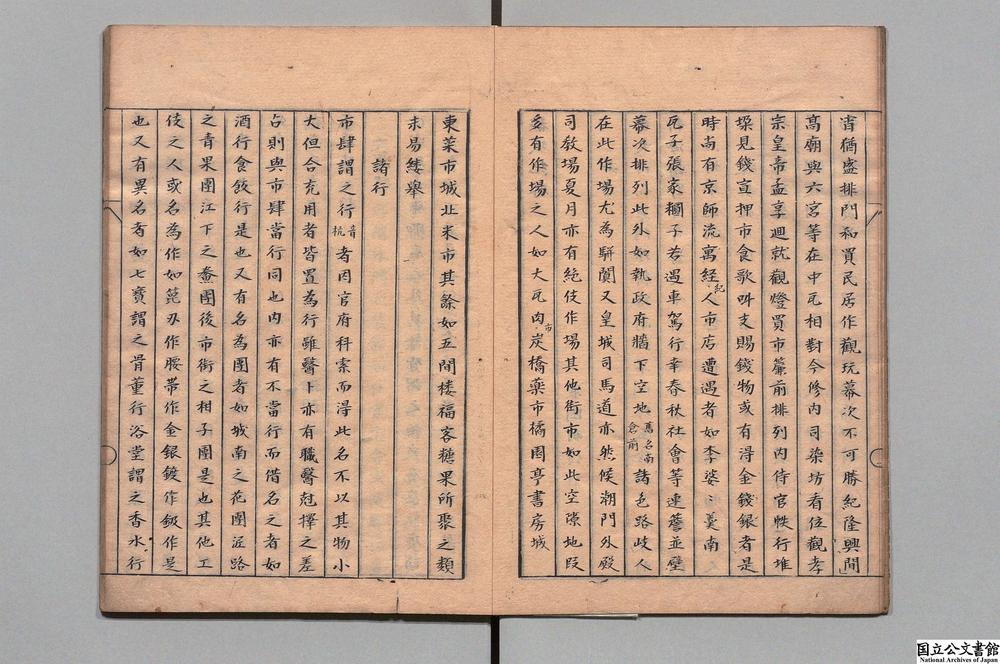 宵猶盛排門和買民居作觀玩幕次不可勝紀隆興間
高廟與六宮等在中瓦相對今修内司染坊看位觀孝
宗皇帝孟享迴就觀燈買市簾前排列内侍官帙行堆
垜見錢宣押市食歌叫支賜錢物或有得金錢銀者是
時尚有京師流寓經紀人市店遭遇者如李婆〻羹南
瓦子張家糰子若遇車駕行幸春秋社會等連簷並壁
幕次排列此外如執政府牆下空地舊名南倉前諸色路歧人
在此作場尤為駢闐又皇城司馬道亦然候潮門外殿
司教場夏月亦有絶伎作場其他街市如此空隙地段
多有作場之人如大瓦肉市炭橋藥市橘園亭書房城
東菜市城北米市其餘如五間樓福客糖果所聚之類
未易縷舉
諸行
市肆謂之行音杭者因官府科索而得此名不以其物小
大但合充用者皆置為行雖醫卜亦有職醫尅擇之差
占則與市肆當行同也内亦有不當行而借名之者如
酒行食飲行是也又有名為團者如城南之花團泥路
之青果團江下之鮝團後市街之柑子團是也其他工
伎之人或名為作如篦刃作腰帶作金銀鍍作鈒作是
也又有異名者如七寶謂之骨董行浴堂謂之香水行
国立公文書館
National Archives of Japan